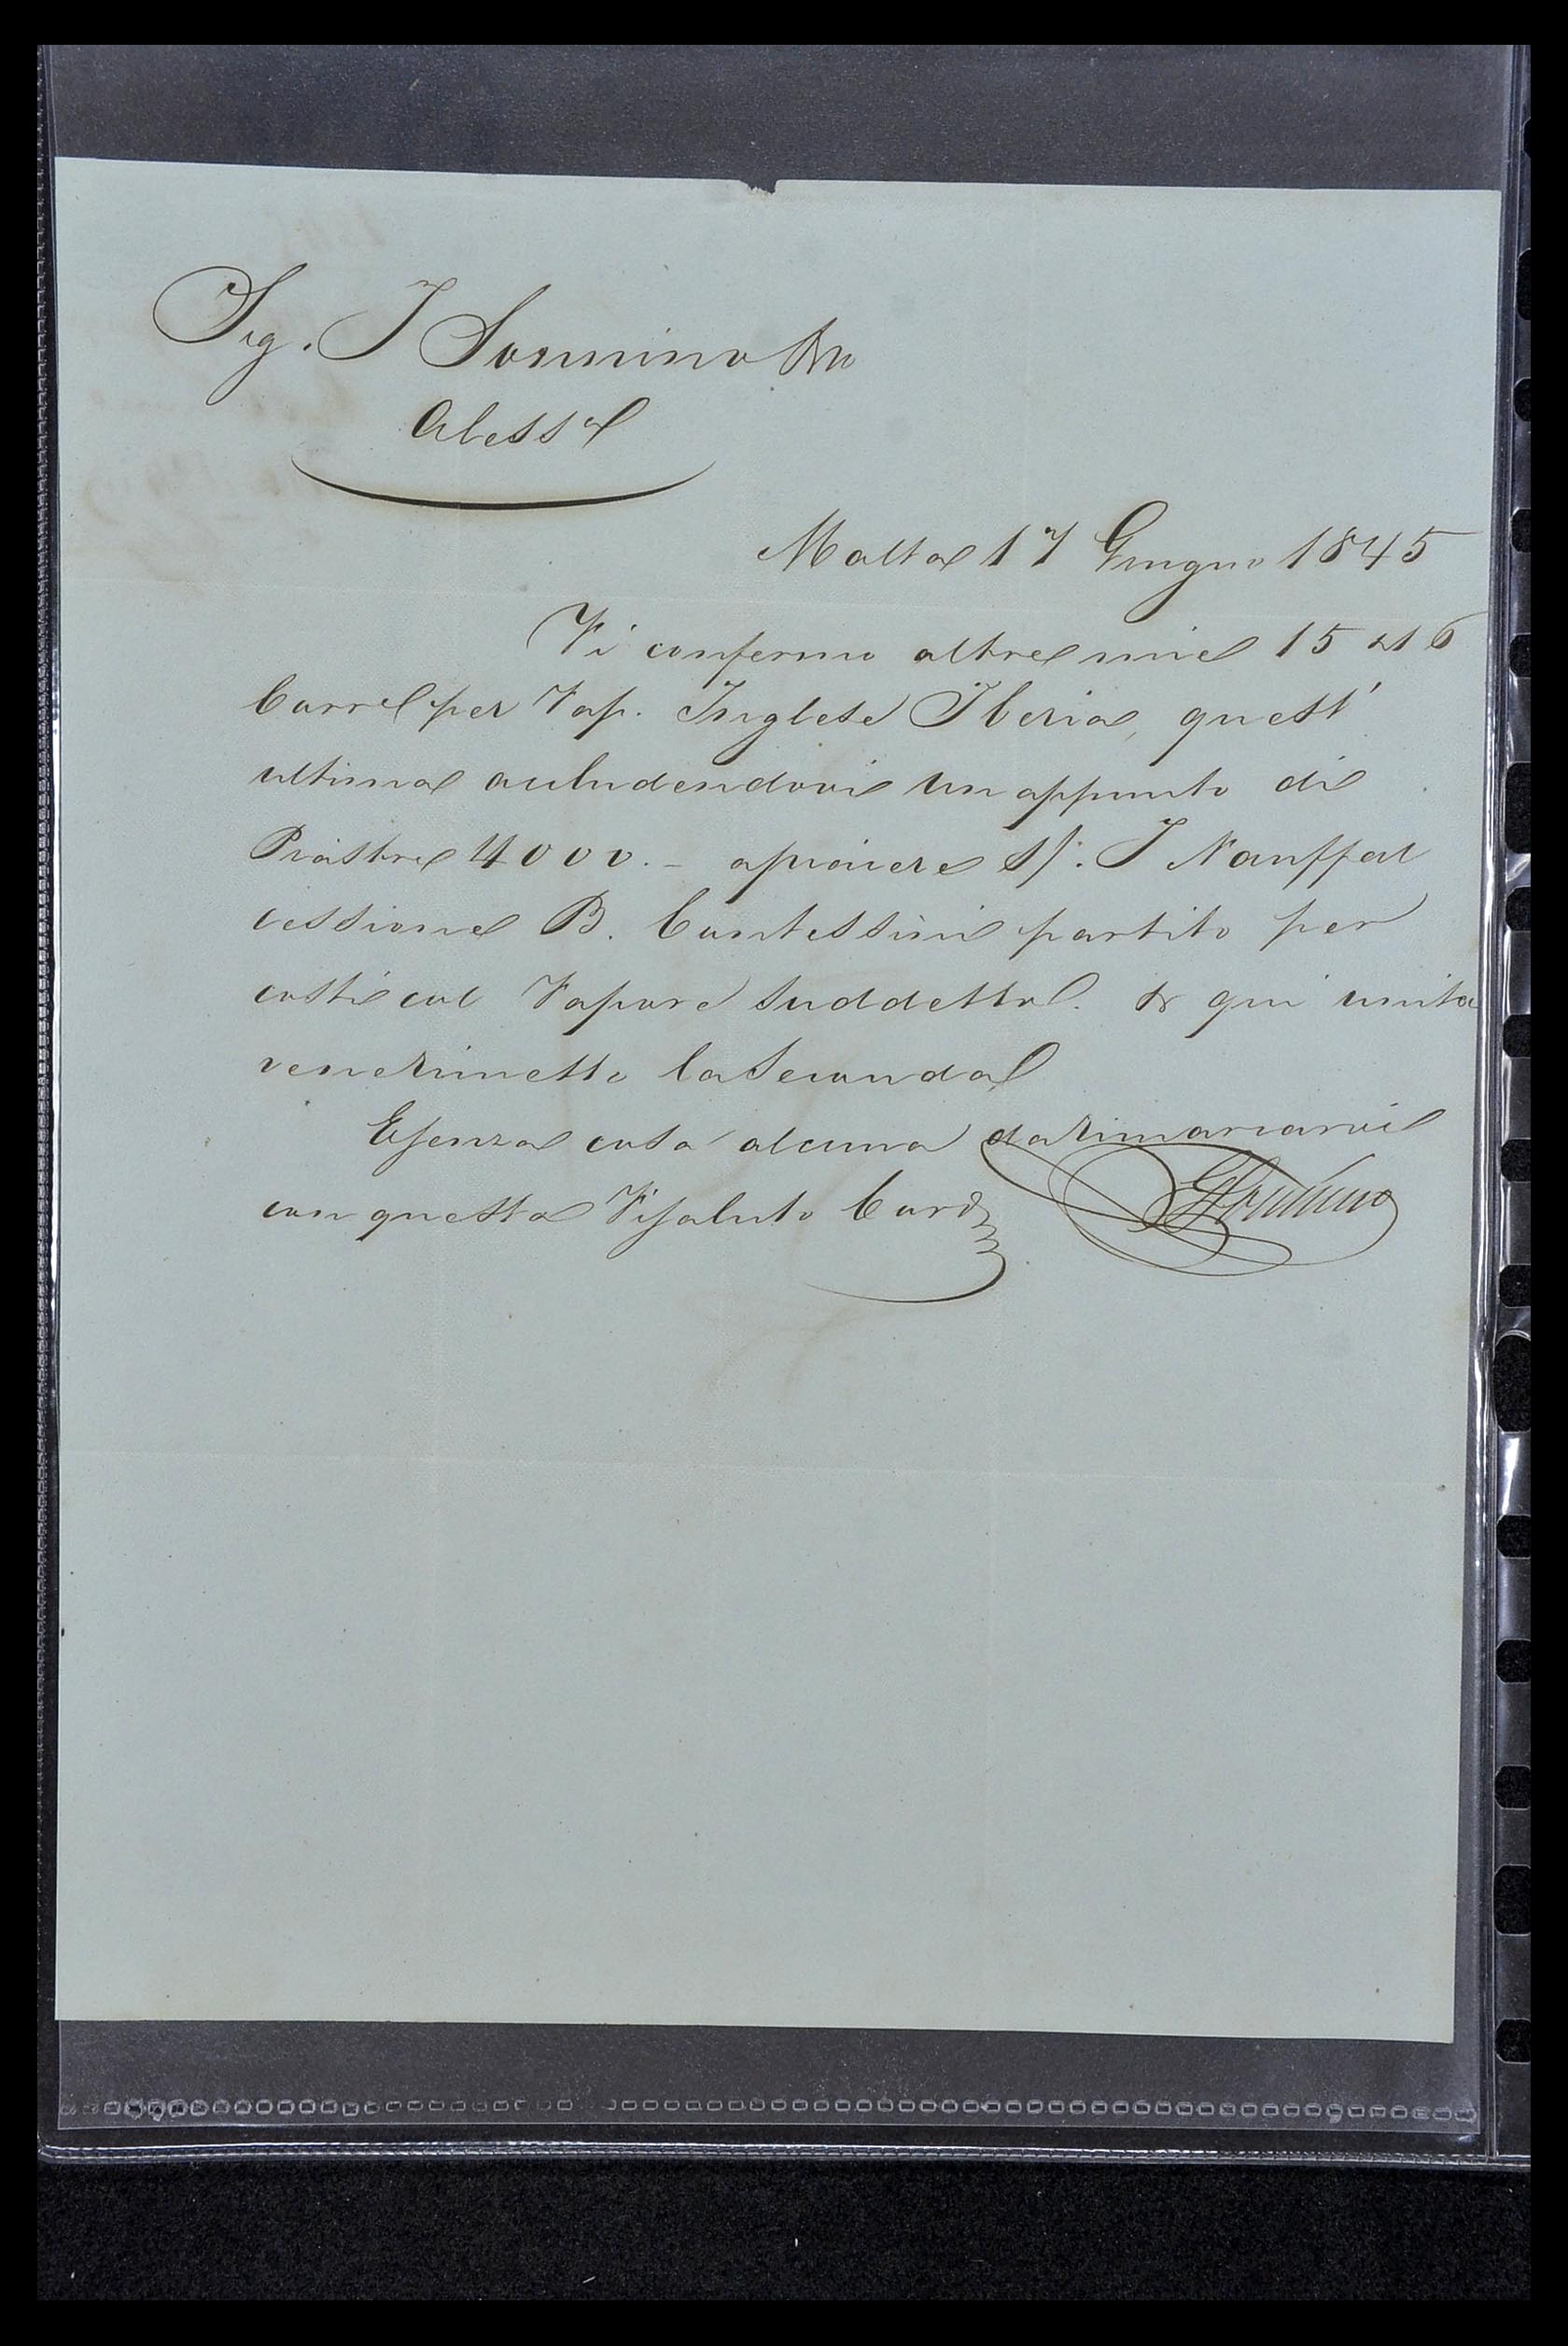 Sig. I Sonnino
Aless.a
Malta 17 Giugno 1845
Vi confermo altre mie 15 e 16
Corr.e per Vap. Inglese Iberia, quest'
ultima acludendovi un appunto di
Piastre 4000.- a piacere s/. I Nauffal
cessione B. Contessini partito per
costi col Vapore suddetto. & qui unita
ve ne rimetto la Seconda
E senza cosa alcuna da rimarcarvi
con questa Vi saluto Card